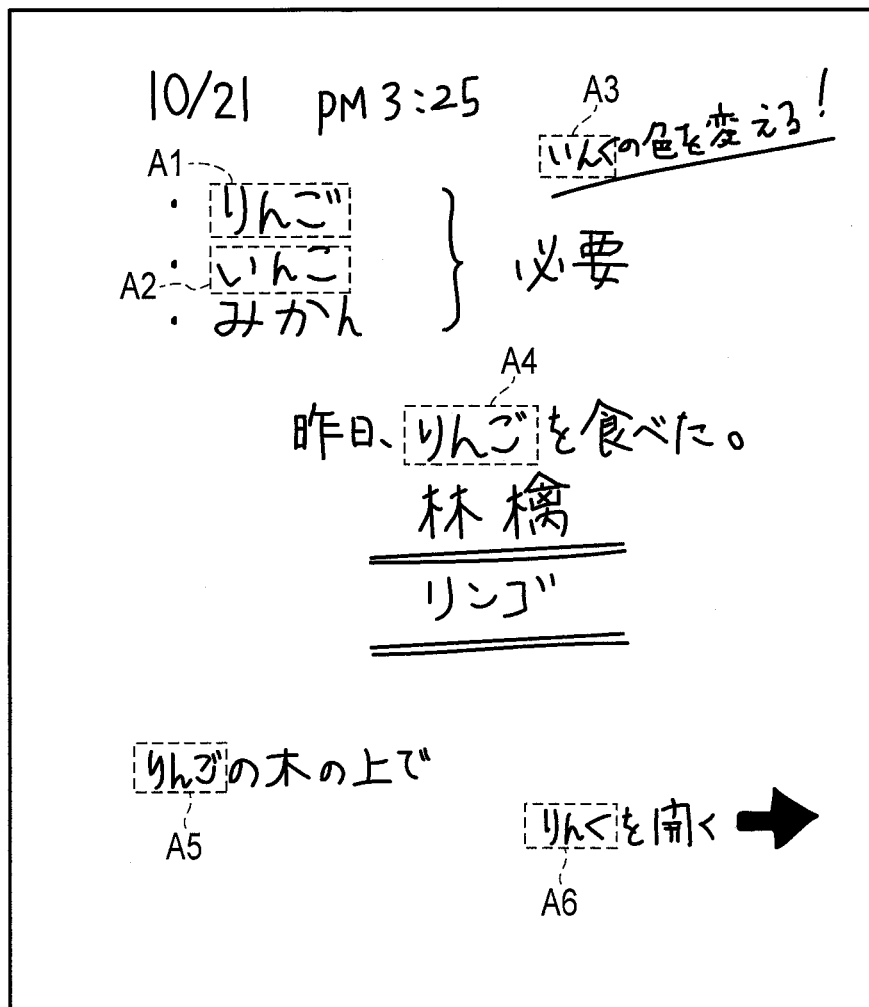 10/21 PM 3:25
A3
いんくの色を変える!
A1
・りんご
A2
・いんこ
・みかん
必要
A4
昨日、りんごを食べた。
林檎
リンゴ
りんごの木の上で
A5
りんくを開く
A6